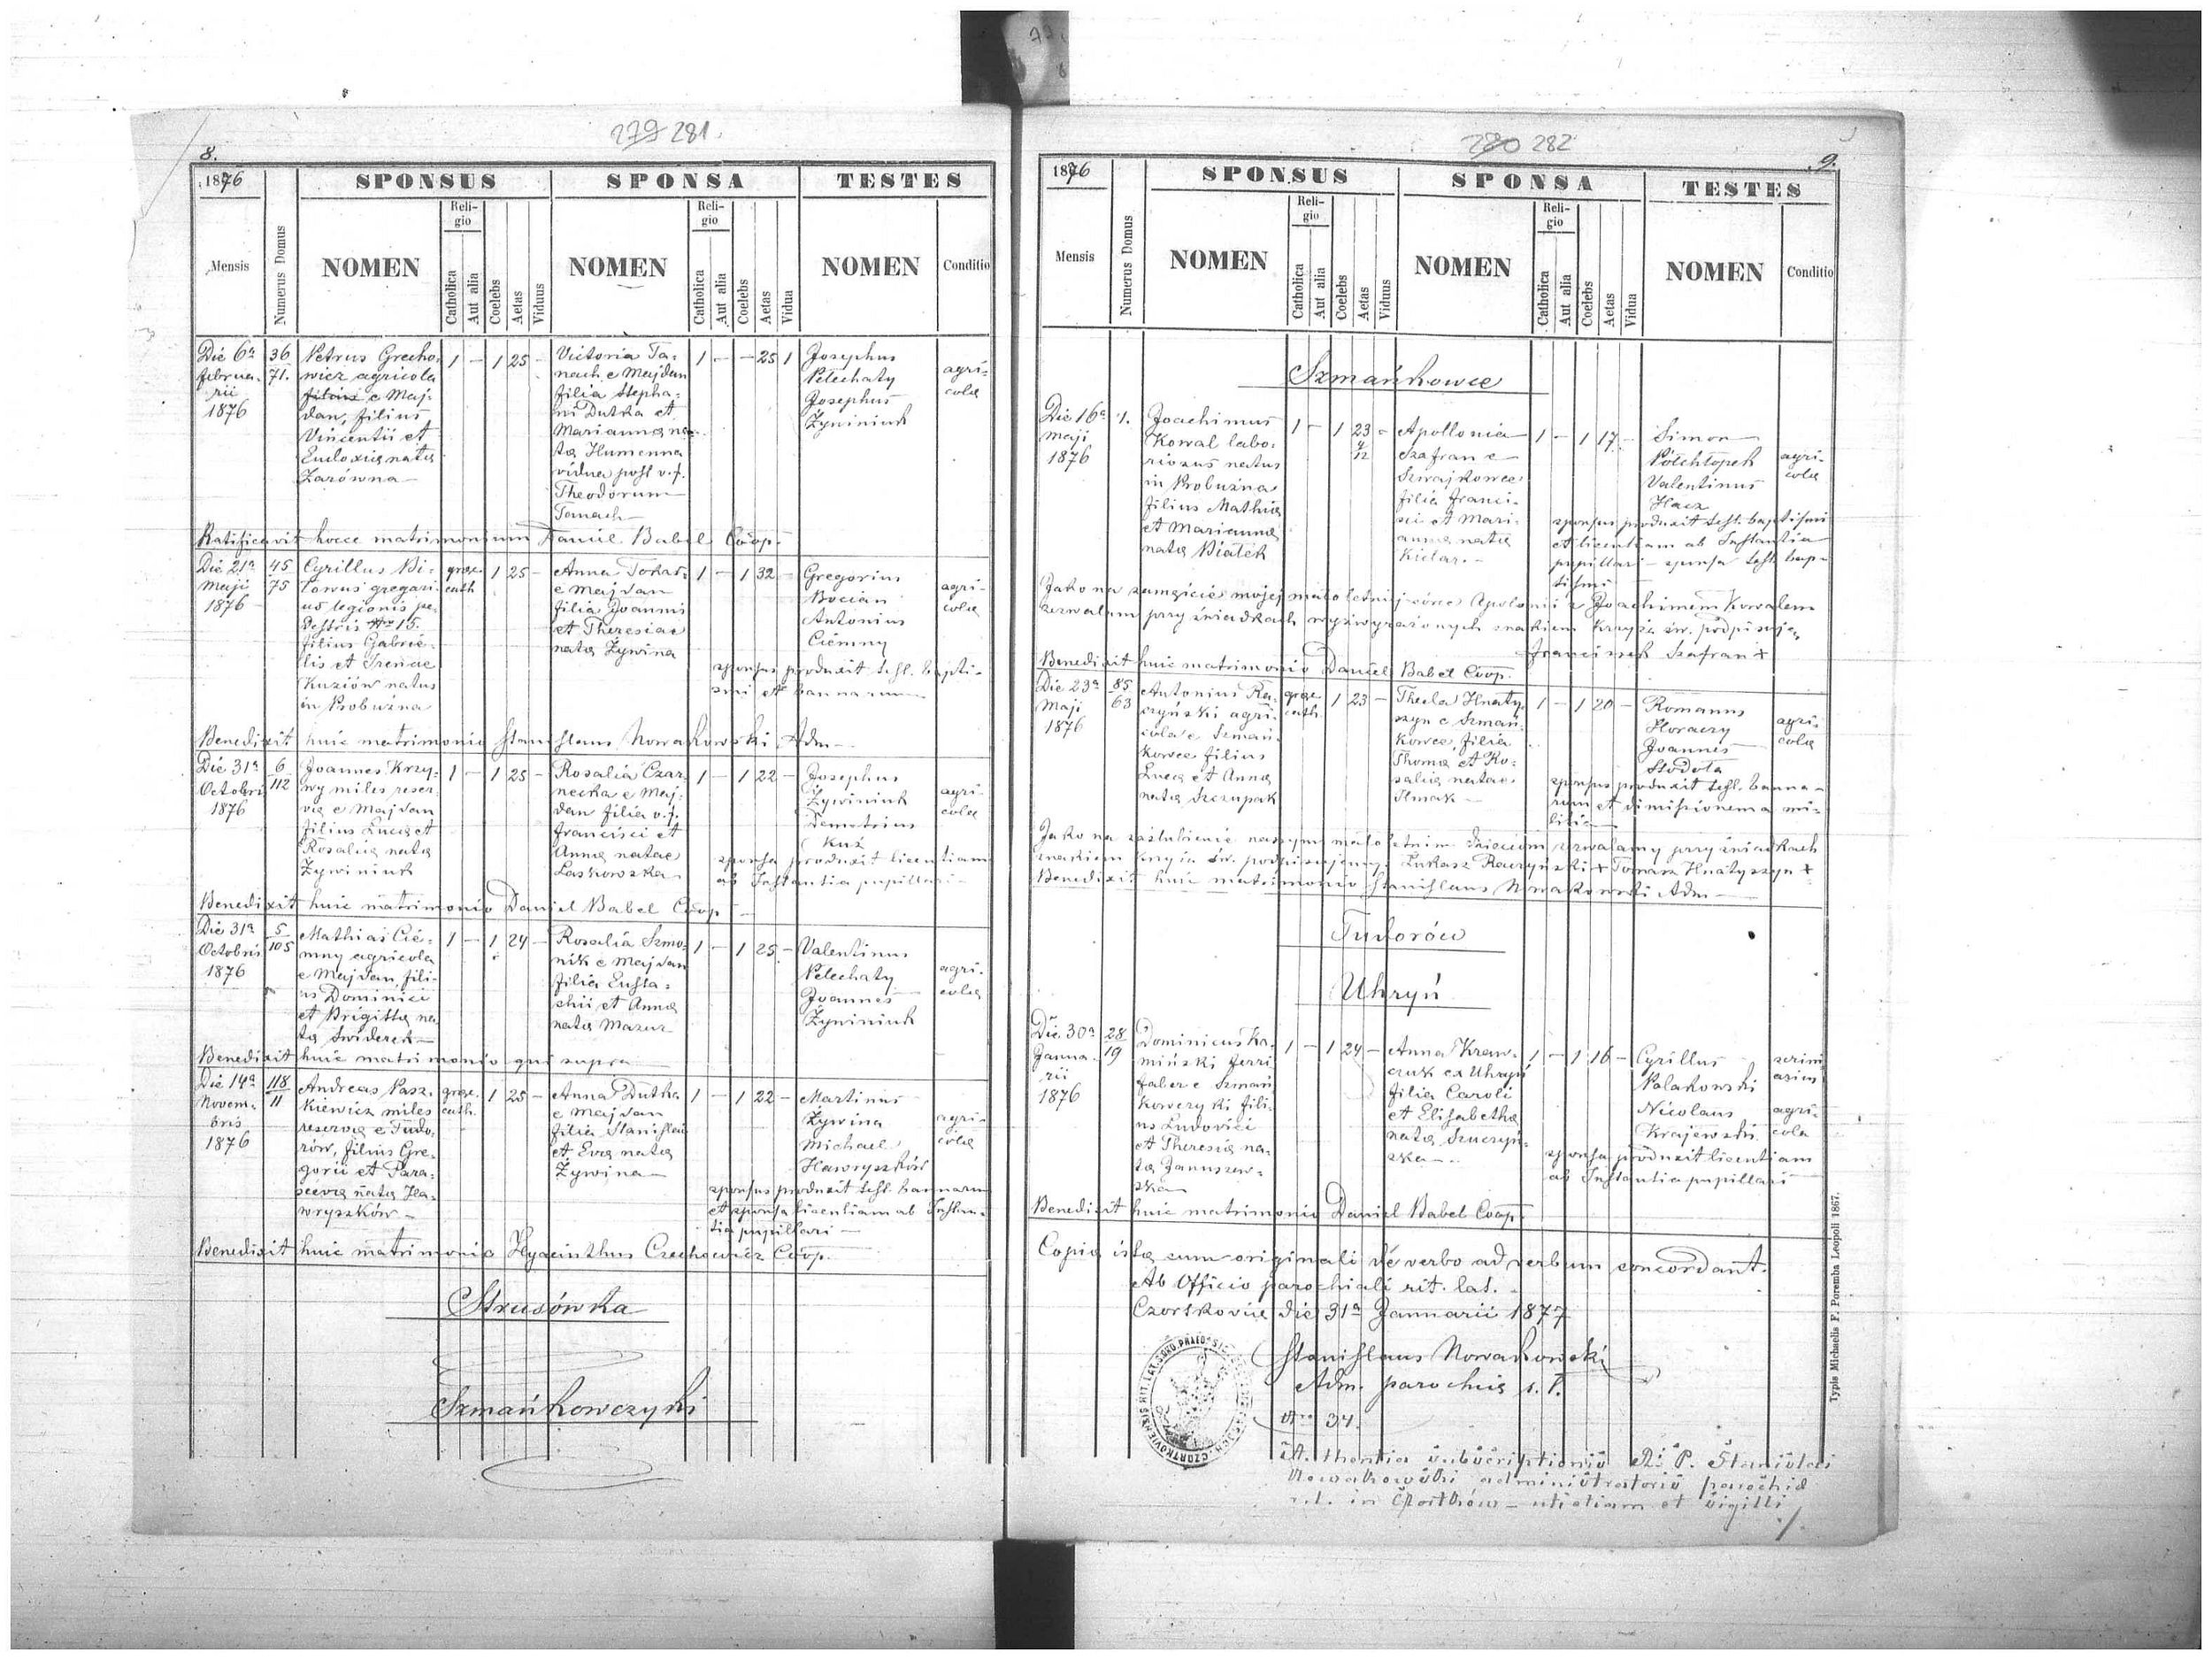 279 281.
8.
1876
SPONSUS
SPONSA
TESTES
Mensis
Numerus Domus
NOMEN
Religio
Catholica
Aut alia
Coelebs
Aetas
Viduus
NOMEN
Religio
Catholica
Aut alia
Coelebs
Aetas
Vidua
NOMEN
Conditio
Die 6a
februa-
rii
1876
36
71.
Petrus Grecho-
wicz agricola
filius e Maj-
dan, filius
Vincentii et
Eudoxia nata
Zarówna
1 - 1 25 -
Victoria Ta-
nach e Majdan
filia Stepha-
ni Dutka et
Marianna na-
ta Humenna
vidua post v.f.
Theodorum
Tanach
1 - - 25 1
Josephus
Pelechaty
Josephus
Żywiniuk
agri-
colae
Ratificavit hocce matrimonium Daniel Babel Coop.
Die 21a
Maji
1876
45
75
Cyrillus Bi-
lowus gregari-
us legionis pe-
destris No 15.
filius Gabrie-
lis et Irenae
Kuziów natus
in Probużna
graec.
cath
1 25 -
Anna Tokar-
e Majdan
filia Joannis
et Theresiae
nata Żywina
1 - 1 32 -
Gregorius
Bocian
Antonius
Ciemny
agri-
cola
sponsus produxit test. bapti-
smi et bannorum
Benedixit huic matrimonio Stanislaus Nowakowski Adm
Die 31a
Octobris
1876
6
112
Joannes Krzy-
wy miles reser-
va e Majdan
filius Luca et
Rosalia nata
Żywiniuk
1 - 1 25 -
Rosalia Czar-
necka e Maj-
dan filia v.f.
Francisci et
Anna natae
Laskowska
1 - 1 22 -
Josephus
Żywiniuk
Demetrius
Kuź
agri-
cola
sponsa produxit licentiam
ab Instantia pupillari
Benedixit huic matrimonio Daniel Babel Coop
Die 31a
Octobris
1876
5
105
Mathias Cie-
mny agricola
e Majdan, fili-
us Dominici
et Brigitta na-
ta Świderek
1 - 1 24 -
Rosalia Szmo-
nik e Majdan
filia Eusta-
chii et Anna
nata Mazur
1 - 1 25 -
Valentinus
Pelechaty
Joannes
Żywiniuk
agri-
cola
Benedixit huic matrimonio qui supra
Die 14a
Novem-
bris
1876
118
11
Andreas Pasz-
kiewicz miles
reserva e Tudo-
rów, filius Gre-
gorii et Para-
scevia nata Ha-
wryszków
graec.
cath.
1 25 -
Anna Dutka
e Majdan
filia Stanislai
et Eva nata
Żywina
1 - 1 22 -
Martinus
Żywina
Michael
Hawryszków
agri-
cola
sponsus produxit test. bannorum
et sponsa licentiam ab Instan-
tia pupillari
Benedixit huic matrimonio Hyacinthus Czechowicz Coop.
Strusówka
Szmańkowczyki
280 282
9.
1876
SPONSUS
SPONSA
TESTES
Mensis
Numerus Domus
NOMEN
Religio
Catholica
Aut alia
Coelebs
Aetas
Viduus
NOMEN
Religio
Catholica
Aut alia
Coelebs
Aetas
Vidua
NOMEN
Conditio
Szmańkowce
Die 16a
Maji
1876
1.
Joachimus
Kowal labo-
riosus natus
in Probużna
filius Mathia
et Marianna
nata Białek
1 - 1 23 -
Apollonia
Szafran e
Szwajkowce
filia Franci-
sci et Mari-
anna nata
Kielar.
1 - 1 17 -
Simon
Półchłopek
Valentinus
Hacz
agri-
cola
sponsus produxit test. baptismi
et licentiam ab Instantia
pupillari - sponsa test. bap-
tismi
Jako na zamęzcie mojej małoletniej córce Apolonii z Joachimem Kowalem
zezwalam przy świadkach wyżwyrażonych znakiem krzyża św. podpisuję
Franciszek Szafran +
Benedixit huic matrimonio Daniel Babel Coop.
Die 23a
Maji
1876
85
63
Antonius Ra-
czyński agri-
cola e Szmań-
kowce filius
Luca et Anna
nata Szczupak
graec.
cath.
1 23 -
Thecla Hnaty-
szyn e Szmań-
kowce, filia
Thoma et Ro-
salia natae
Ilmak
1 - 1 20 -
Romanus
Horaczy
Joannes
Stodoła
agri-
cola
sponsus produxit test. banno-
rum et dimissionem a mi-
litia
Jako na zaślubienie naszym małoletnim dzieciom zezwalamy przy świadkach
znakiem krzyża św. podpisujemy. Łukasz Raczyński + Tomasz Hnatyszyn +
Benedixit huic matrimonio Stanislaus Nowakowski Adm
Tudorów
Uhryń
Die 30a
Janua-
rii
1876
28
19
Dominicus Ka-
miński ferri
faber e Szmań-
kowczyki fili-
us Ludovici
et Theresia na-
ta Januszew-
ska
1 - 1 24 -
Anna Kraw-
czuk ex Uhryń
filia Caroli
et Elisabetha
nata Szuczyń-
ska
1 - 1 16 -
Cyrillus
Polakowski
Nicolaus
Krajewski
agri-
cola
sponsa produxit licentiam
ab Instantia pupillari
Benedixit huic matrimonio Daniel Babel Coop.
Copia ista cum originali de verbo ad verbum concordant.
Ab Officio parochiali rit. lat.
Czortkovia die 31a Januarii 1877
Stanislaus Nowakowski
Adm. parochia r. l.
No 34.
subscriptionis R. P. Stanislai
Nowakowski administratoris parochia
r. l. in Czortków - uti etiam et sigilli
Typis Michaelis F. Poremba Leopoli 1867.